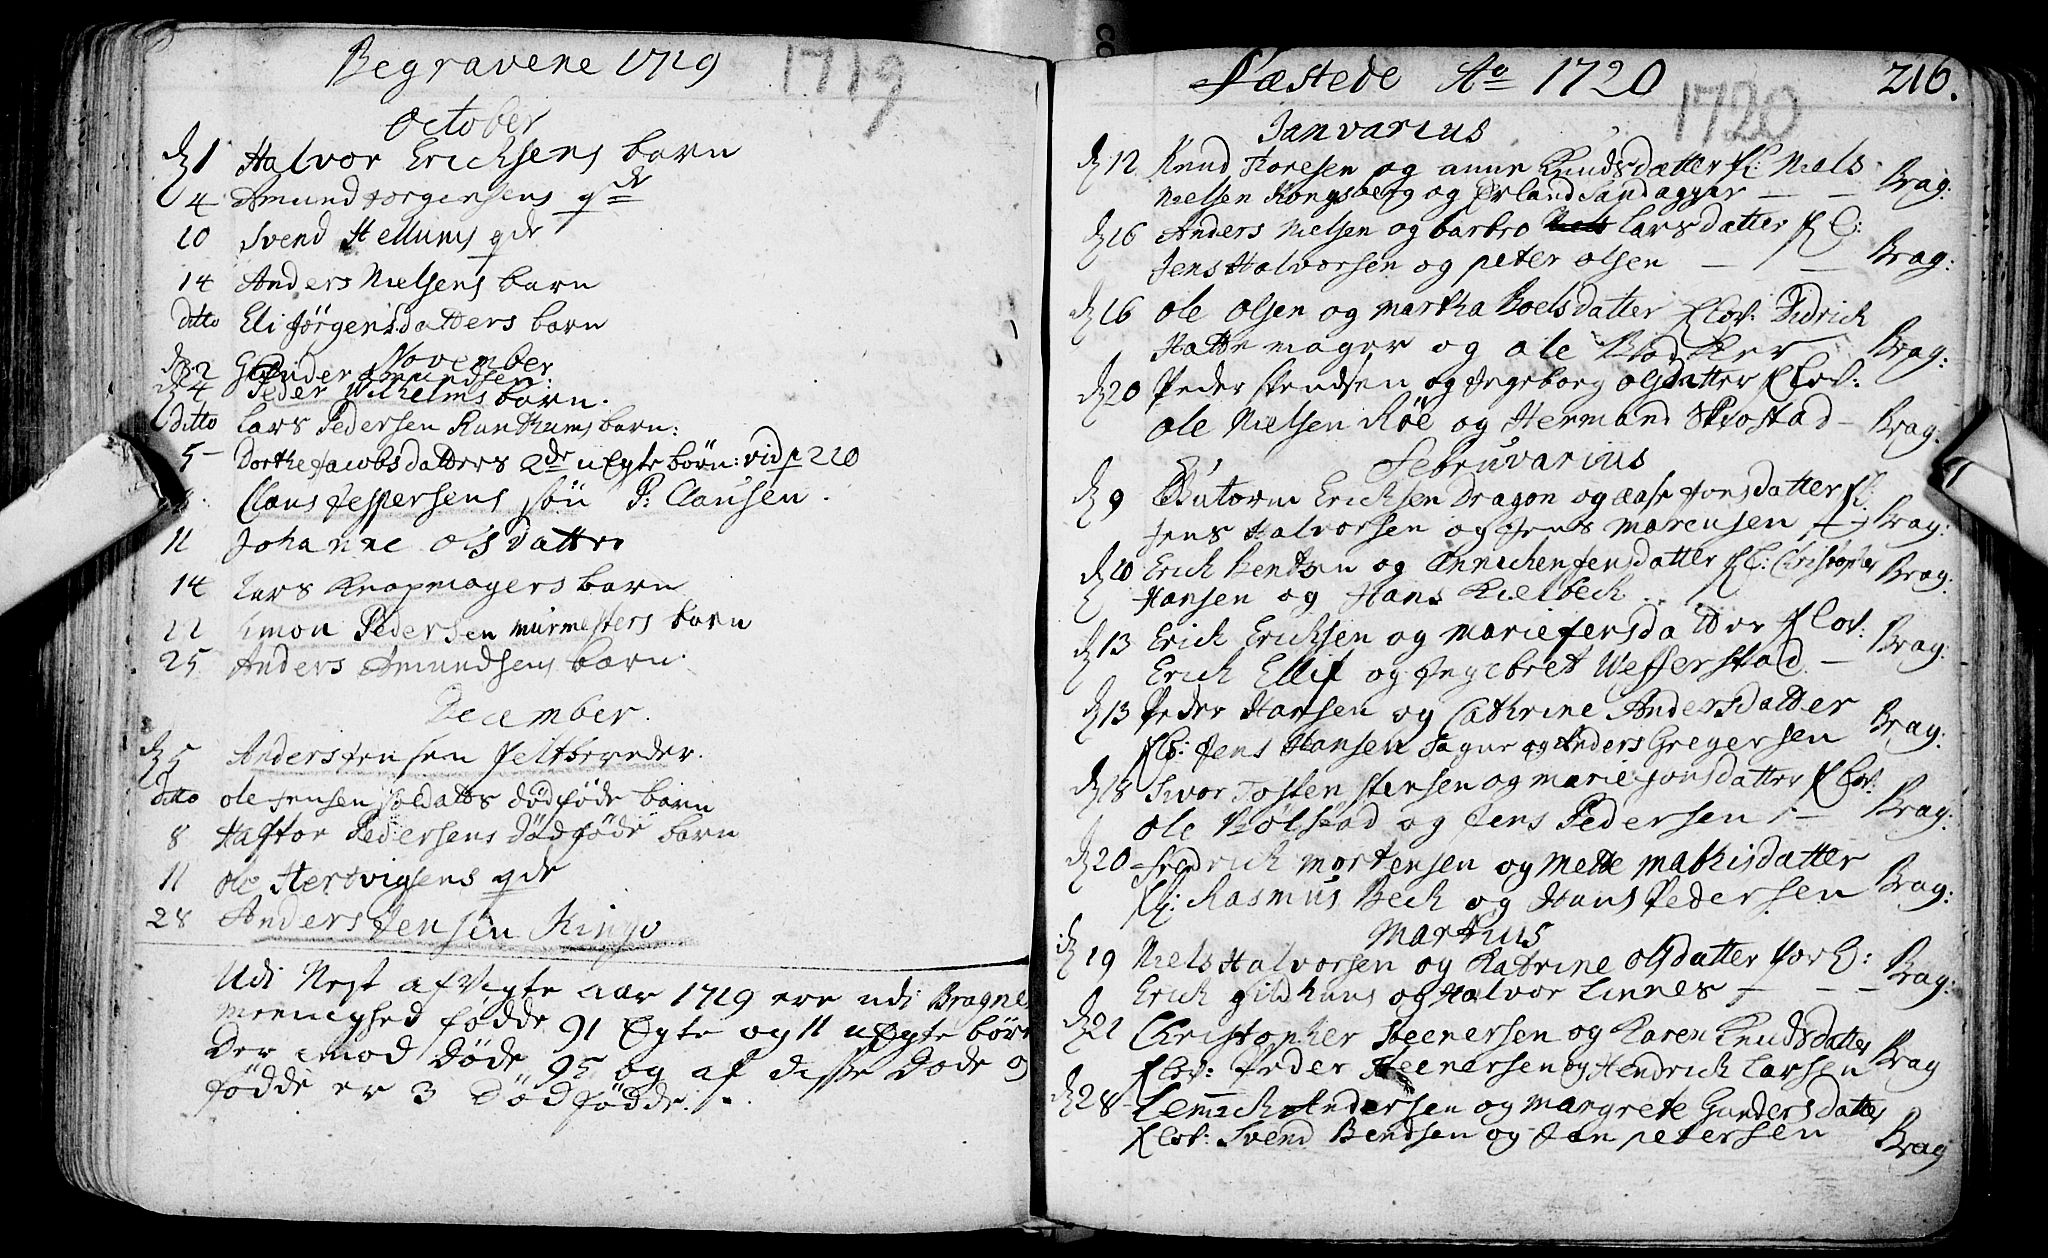 Begravene 1719
1719
October
d 1 Halvor Erichsens barn
4 Amund Jorgensens qde
10 Svend Hellums qde
14 Anders Nielsens barn
ditto Eli Jörgensdatters barn
November
d 2 Gunder Amundsen:
d 4 Peder Wilhelms barn.
ditto Lars Pedersen barn:
5 Dorthe Jacobsdatters 2de uEgte börn: vid p 220
Claus Jespersens sön P: Clausen.
11 Johanne olsdatter
14 Lars Knapmagers barn
22 Simon Pedersen murmesters barn
25 Anders Amundsens barn.
December.
d 5 Anders Jensen feltbereder.
ditto ole Jensen soldatts dödföde barn
8 Haftor Pedersens dödföde barn
11 ole Hertvigsens qde
28 Anders Jensen Ringo
Udi Nest afvigte aar 1719 ere udi Bragnes
meenighed födde 91 Egte og 11 uEgte börn
der imod döde 95 og af disse dode og
födde er 3 dödfödde.
Fæstede Ao 1720
216.
1720
Janvarius
d 12 Knud Toresen og anne Knudsdatter fl: Niels
Nielsen Kongsberg og Erland Sandager Brag:
d 16 Anders Nielsen og barbro Larsdatter fl:
Jens Halvorsen og peter olsen Brag:
d 16 ole olsen og martha Boelsdatter flov: Didrich
Hattemager og ole Bödker Brag:
d 20 Peder Svendsen og Ingeborg olsdatter flov:
ole Nielsen Röe og Hermand Skiostad Brag.
Februvarius
d 9 Gutorm Erichsen Dragon og aase Jonsdatter fl:
Jens Halvorsen og Jens marensen Brag:
d 10 Erich Bentsen og Annichen Jensdatter fl: Christopher
Hansen og Hans Kielbech Brag:
d 13 Erich Erichsen og marie Jensdatter flov:
Erich Ellif og Ingebret Wefferstad Brag:
d 13 Peder Hansen og Cathrine Andersdatter
flo: Jens Hansen Sagur og Anders Gregersen Brag:
d 18 Iwor Tostenstensen og marie Jonsdatter flov:
ole Bölstad og Jens Pedersen Brag:
d 20 Fredrich mortensen og Mette mathisdatter
fl: Rasmus Bech og Hans Pedersen Brag:
Martius
d 19 Niels Halvorsen og Katrine olsdatter forl:
Erich gildhuus og Halvor Linnes Brag:
d 21 Christopher Steenersen og Karen Knudsdatter
flov: Peder Steenersen og Hendrich Larsen Brag
d 28 Lemich Andersen og margrete Gundersdatter
flov: Svend Bendsen og Jan petersen Brag